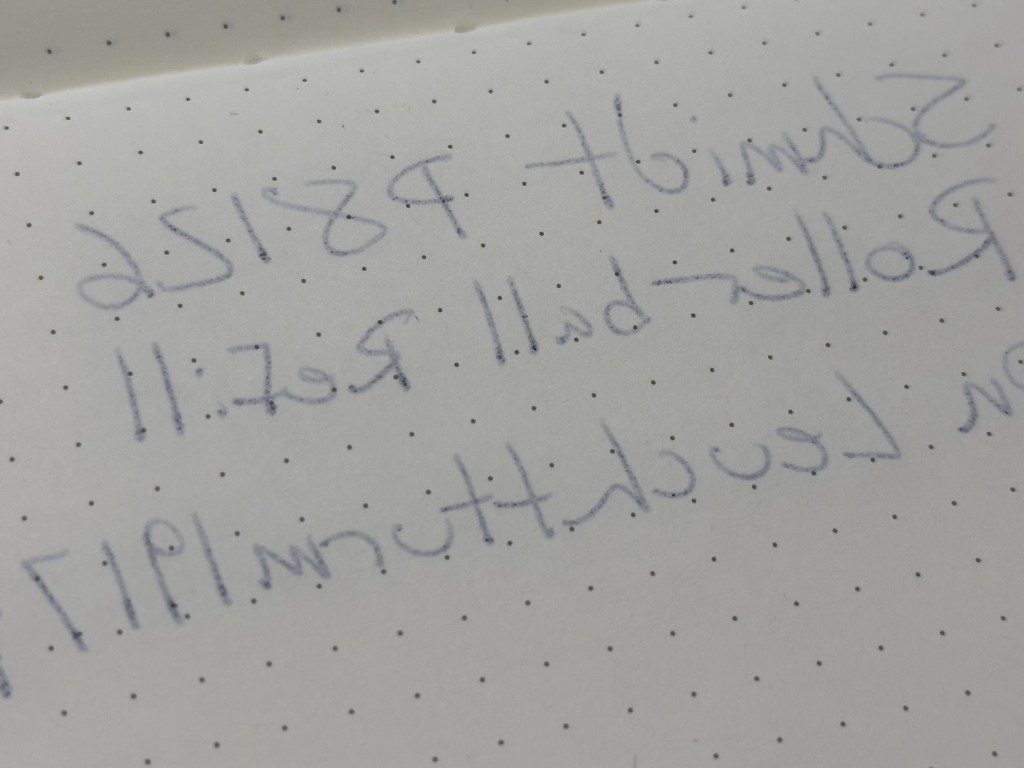 Schmidt P8126
Roller-ball Refill
on Leuchtturm1917